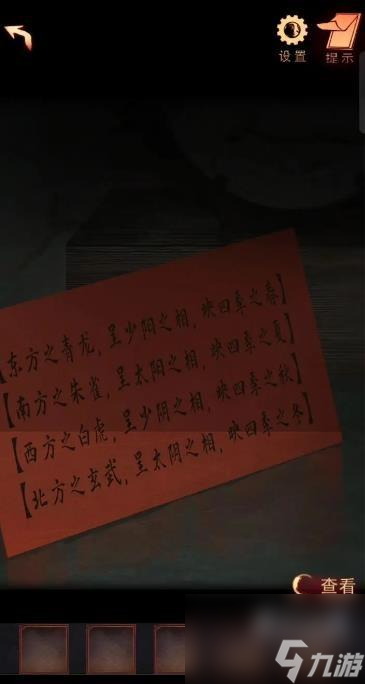 设置
提示
【东方之青龙，呈少阳之相，映四季之春】
【南方之朱雀，呈太阳之相，映四季之夏】
【西方之白虎，呈少阴之相，映四季之秋】
【北方之玄武，呈太阴之相，映四季之冬】
查看
九游